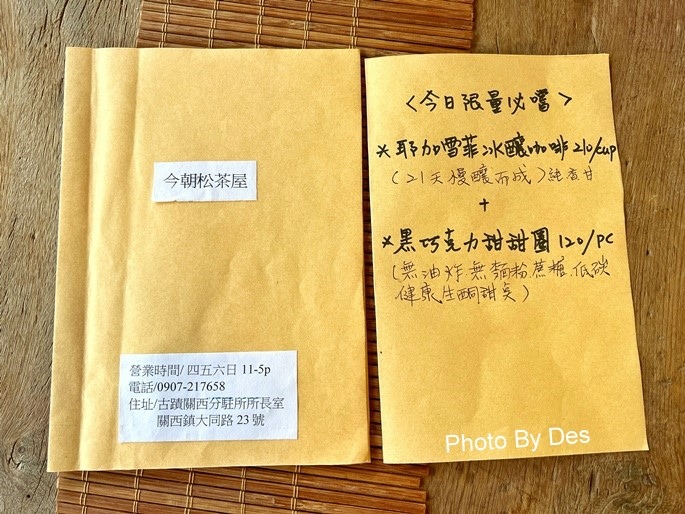 今朝松茶屋
營業時間/ 四五六日 11-5p
電話/0907-217658
住址/古蹟關西分駐所所長室
關西鎮大同路 23 號
<今日限量必嚐>
*耶加雪菲冰釀咖啡 210/cup
(21天慢釀而成)純香甘
+
*黑巧克力甜甜圈 120/PC
(無油炸.無麵粉.蔗糖.低碳
健康生酮甜點)
Photo By Des